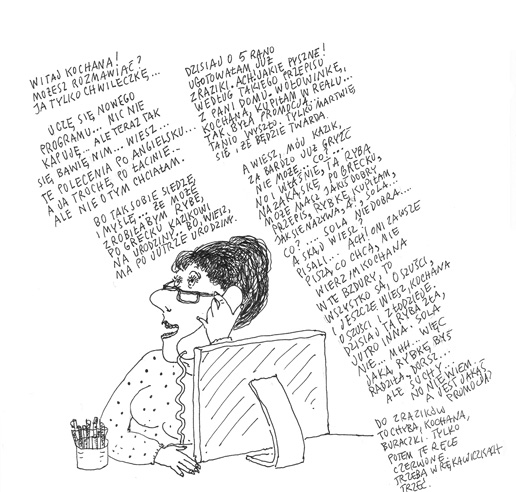 WITAJ KOCHANA!
MOŻESZ ROZMAWIAĆ?
JA TYLKO CHWILECZKĘ...
UCZĘ SIĘ NOWEGO
PROGRAMU... NIC NIE
KAPUJĘ... ALE TERAZ TAK
SIĘ BAWIĘ NIM... WIESZ...
TE POLECENIA PO ANGIELSKU...
A JA TROCHĘ PO ŁACINIE...
ALE NIE O TYM CHCIAŁAM.
BO TAK SOBIE SIEDZĘ
I MYŚLĘ... ŻE MOŻE
ZROBIŁABYM RYBĘ,
PO GRECKU KAZIKOWI
NA URODZINY, BO WIESZ,
MA POJUTRZE URODZINY.
DZISIAJ O 5 RANO
UGOTOWAŁAM JUŻ
ZRAZIKI. ACH! JAKIE PYSZNE!
WEDŁUG TAKIEGO PRZEPISU
Z PANI DOMU. WOŁOWINKĘ,
KOCHANA, KUPIŁAM W REALU...
JAK BYŁA PROMOCJA...
TANIO WYSZŁO. TYLKO MARTWIĘ
SIĘ, ŻE BĘDZIE TWARDA.
A WIESZ, MÓJ KAZIK,
ZA BARDZO JUŻ GRYŹĆ
NIE MOŻE... CO?...
NO I WŁAŚNIE, TA RYBA
NA ZAKĄSKĘ, PO GRECKU,
MOŻE MASZ JAKIŚ DOBRY
PRZEPIS, RYBKĘ KUPIŁAM,
JAK SIĘ NAZYWA, A!, SOLA...
CO?.... SOLA NIEDOBRA....
A SKĄD WIESZ?
PISALI... ACH! ONI ZAWSZE
PISZĄ CO CHCĄ, NIE
WIERZ MI KOCHANA
W TE BZDURY, TO
WSZYSTKO SĄ, OSZUŚCI,
I JESZCZE WIESZ, KOCHANA
OSZUŚCI... ZŁODZIEJE.
DZISIAJ TA RYBA ZŁA,
JUTRO INNA. SOLA
NIE... MHH... WIĘC
JAKĄ RYBKĘ BYŚ
RADZIŁA, DORSZ...
ALE SUCHY...
NO NIE WIEM...
A JEST JAKAŚ
PROMOCJA?
DO ZRAZIKÓW
TO CHYBA, KOCHANA,
BURACZKI. TYLKO
POTEM TE RĘCE
CZERWONE.
TRZEBA W RĘKAWICZKACH
TRZEĆ.